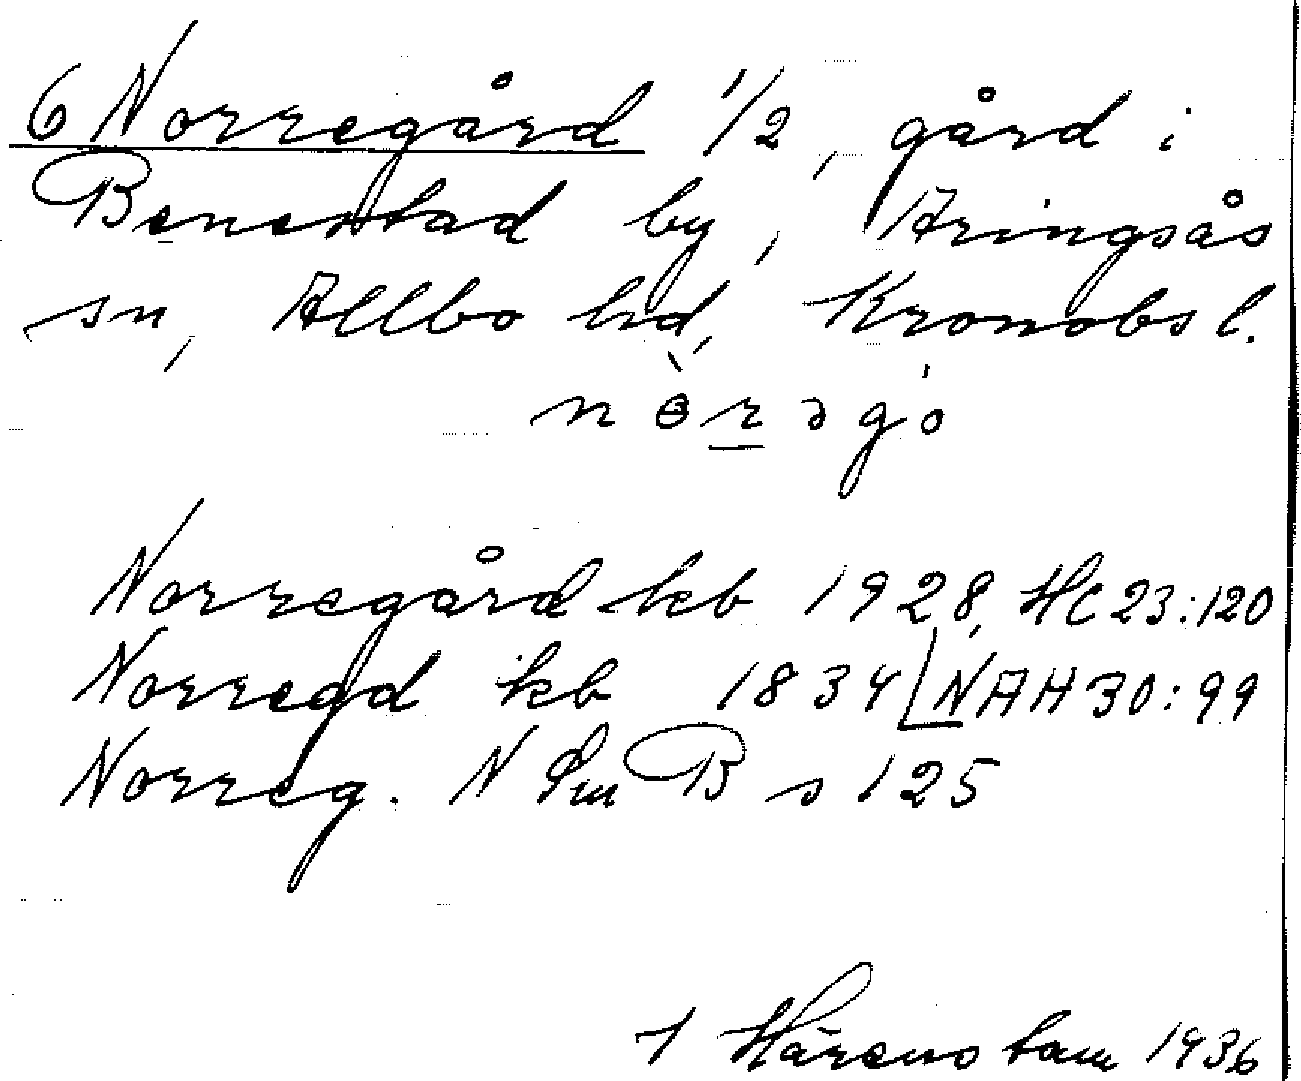 6 Norregård 1/2, gård i
Benestad by, Aringsås
sn, Allbo hd, Kronobs l.
nèrəgo
Norregård kb 1928, HC23:120
Norregd kb 1834 NAH30:99
Norreg. N Sm B s 125
Härenstam 1936